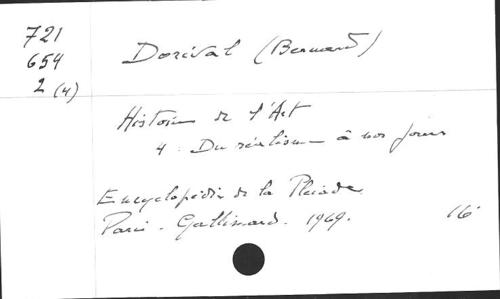 721
654
2 (4)
Dorival (Bernard)
Histoire de l'Art
4. Du réalisme à nos jours
Encyclopédie de la Pléiade
Paris - Gallimard - 1969.
16°